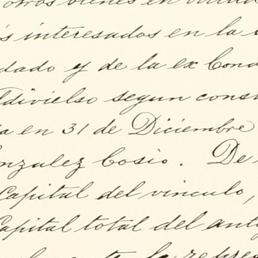 otros bienes en
s interesados en la
dado y de la ex Cond
ldivielso segun cons
a en 31 de Diciembre
onzalez Cosio. De
Capital del vinculo,
Capital total del ant